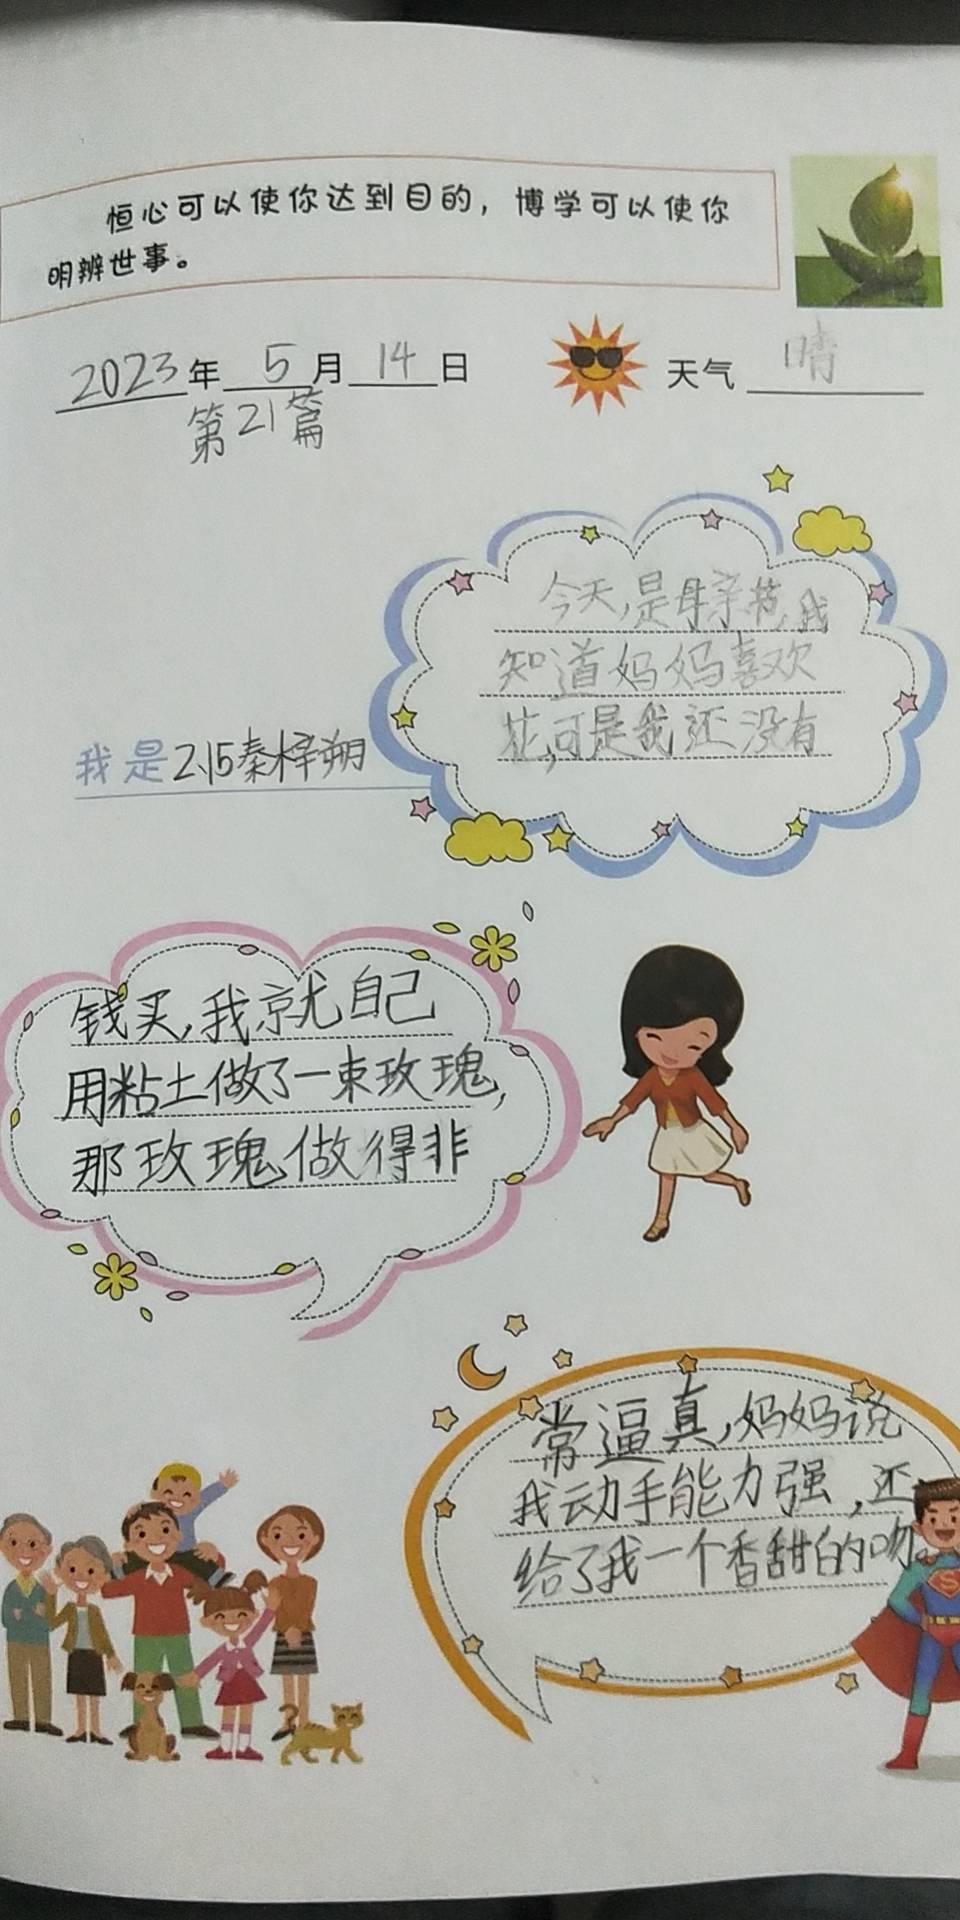 恒心可以使你达到目的，博学可以使你
明辨世事。
2023年 5 月 14 日 天气 晴
第21篇
今天,是母亲节,我
知道妈妈喜欢
花,可是我还没有
我是 2.15秦梓朔
钱买,我就自己
用粘土做了一束玫瑰,
那玫瑰做得非
常逼真,妈妈说
我动手能力强,还
给了我一个香甜的吻。